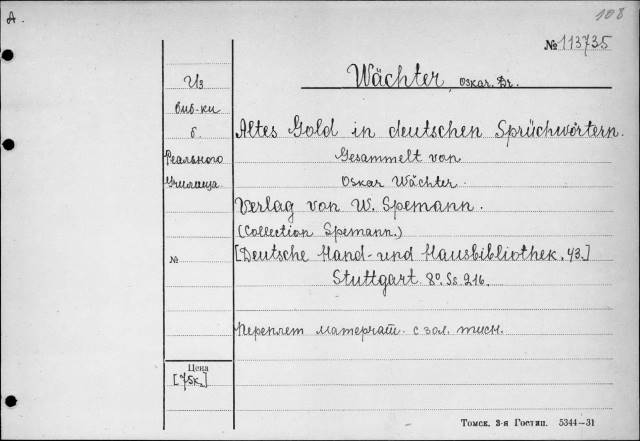 А.
108
№ 113735
Wächter, Oskar. Dr.
Из
биб-ки
б.
Реального
Училища
№
Altes Gold in deutschen Sprüchwörtern.
Gesammelt von
Oskar Wächter.
Verlag von W. Spemann.
(Collection Spemann.)
[Deutsche Hand- und Hausbibliothek. 43.]
Stuttgart 8º. Ss 216.
Переплет матерчат. с зол. тисн.
Цена
[75к.]
Томск. 3-я Гостип. 5344—31